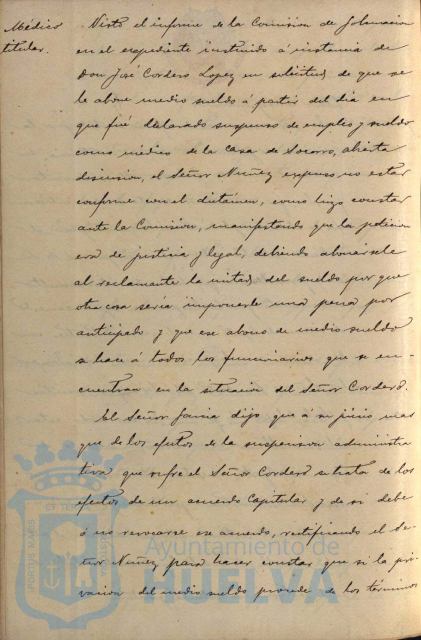 Médico
titular.
Visto el informe de la Comisión de Gobernación
en el expediente instruido á instancia de
Don José Cordero Lopez en solicitud de que se
le abone medio sueldo á partir del dia en
que fué declarado suspenso de empleo y sueldo
como médico de la Casa de Socorro, abierta
discusion, el Señor Nuñez expuso no estar
conforme con el dictámen, como hizo constar
ante la Comision, manifestando que la peticion
era de justicia y legal, debiendo abonársele
al reclamante la mitad del sueldo por que
otra cosa sería imponerle una pena por
anticipado y que ese abono de medio sueldo
se hace á todos los funcionarios que se en-
cuentran en la situacion del Señor Cordero.
El Señor Garcia dijo que á su juicio mas
que de los efectos de la suspension administra
tiva que sufre el Señor Cordero se trata de los
efectos de un acuerdo Capitular y de si debe
ó no revocarse ese acuerdo, rectificando el Se-
ñor Nuñez para hacer constar que si la pri-
vacion del medio sueldo procede de los términos
PORTUS MARIS
ET TER
Ayuntamiento de
HUELVA